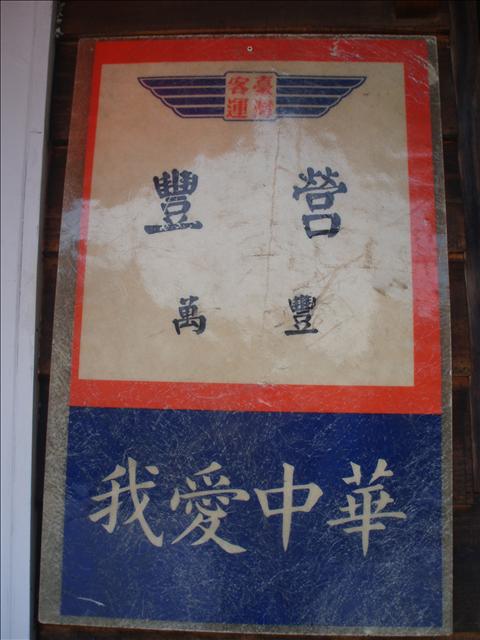 臺灣
客運
豐營
萬豐
我愛中華